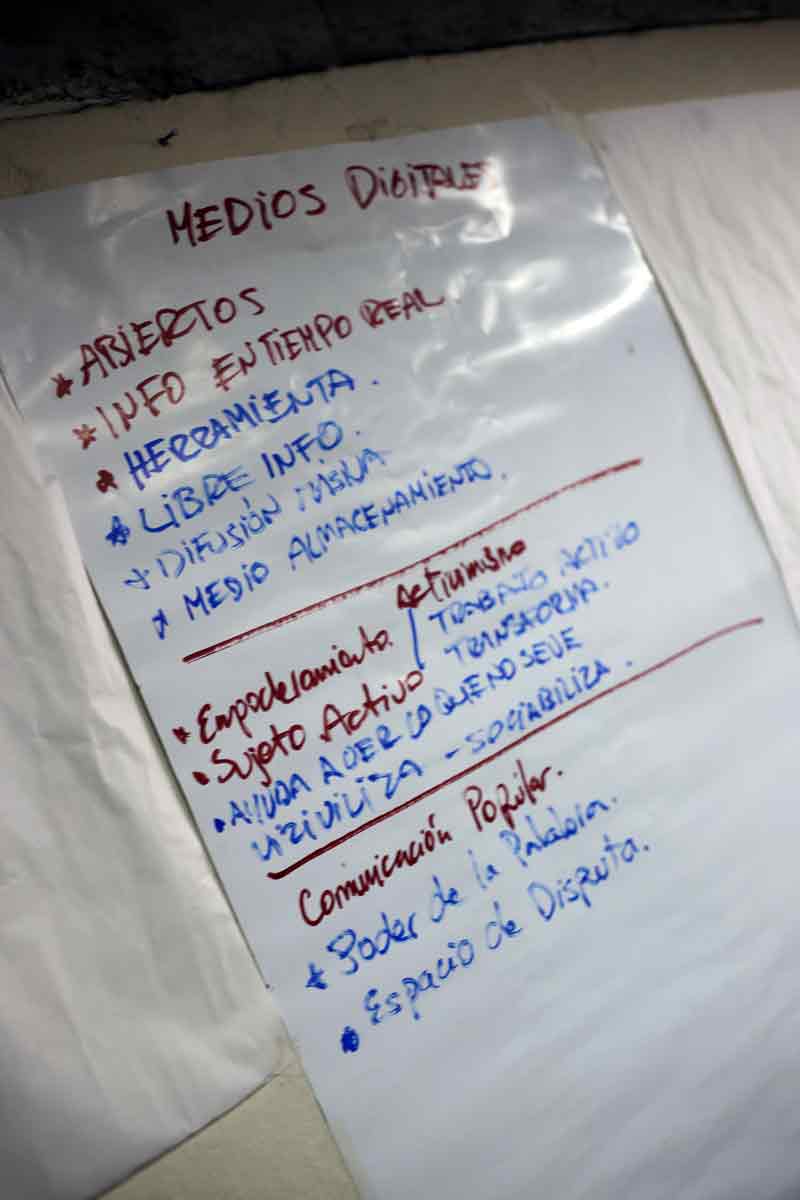 MEDIOS DIGITALES
* ABIERTOS
* INFO EN TIEMPO REAL.
* HERRAMIENTA.
* LIBRE INFO.
* DIFUSIÓN MASIVA
* MEDIO ALMACENAMIENTO.
Activismo
• Empoderamiento. / TRABAJO ACTIVO
• Sujeto Activo TRANSFORMA.
• AYUDA A VER LO QUE NO SE VE
VIZIVILIZA - SOCIABILIZA.
Comunicación Popular.
* Poder de la Palabra.
* Espacio de Disputa.